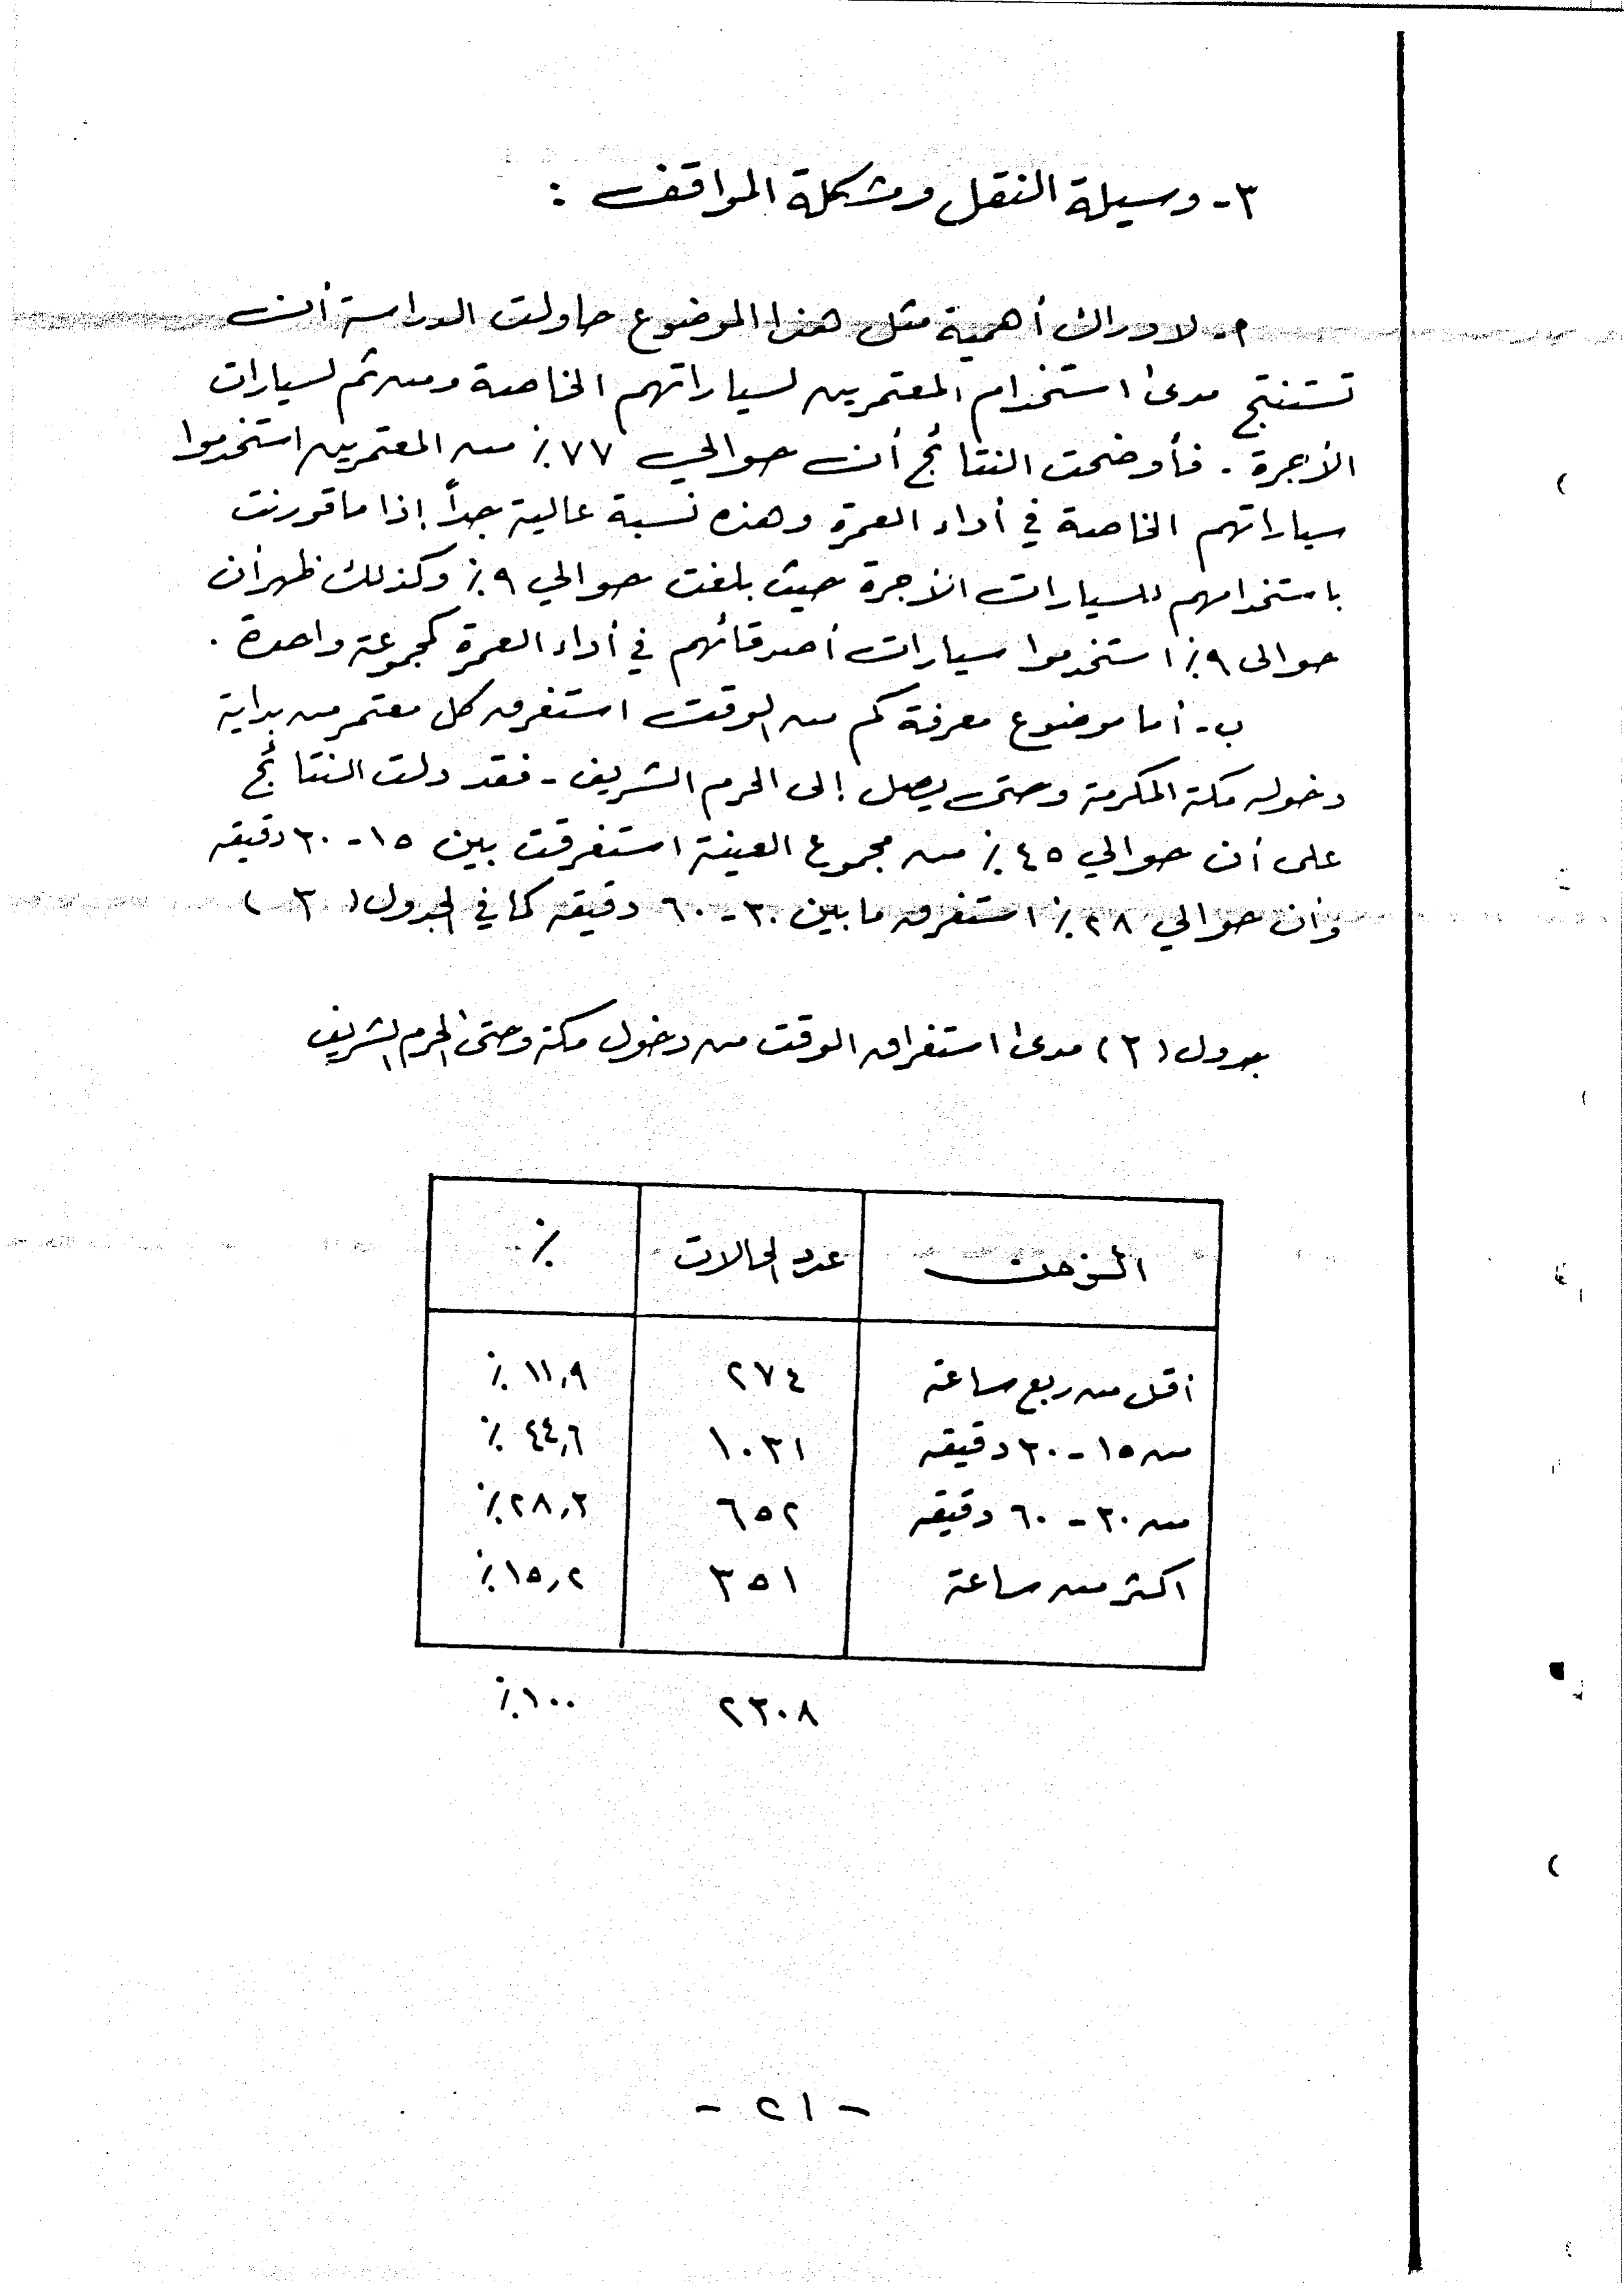 ٣- وسيلة النقل ومشكلة المواقف :
أ- لادراك أهمية مثل هذا الموضوع حاولت الدراسة أن
تستنتج مدى استخدام المعتمرين لسياراتهم الخاصة ومن ثم لسيارات
الأجرة . فأوضحت النتائج أن حوالي ٧٧٪ من المعتمرين استخدموا
سياراتهم الخاصة في أداء العمرة وهذه نسبة عالية جداً إذا ما قورنت
باستخدامهم للسيارات الأجرة حيث بلغت حوالي ٩٪ وكذلك ظهر أن
حوالى ٩٪ استخدموا سيارات أصدقائهم في أداء العمرة كمجموعة واحدة .
ب- أما موضوع معرفة كم من الوقت استغرق كل معتمر من بداية
دخوله مكة المكرمة وحتى يصل إلى الحرم الشريف - فقد دلت النتائج
على أن حوالي ٤٥٪ من مجموع العينة استغرقت بين ١٥-٣٠ دقيقه
وأن حوالي ٢٨٪ استغرق ما بين ٣٠-٦٠ دقيقه كما في الجدول ( ٣ )
جدول (٣) مدى استغراق الوقت من دخول مكة وحتى الحرم الشريف
الزمن عدد الحالات ٪
أقل من ربع ساعة ٢٧٤ ١١,٩ ٪
من ١٥-٣٠ دقيقه ١٠٣١ ٤٤,٦ ٪
من ٣٠-٦٠ دقيقه ٦٥٢ ٢٨,٣٪
اكثر من ساعة ٣٥١ ١٥,٢٪
٢٣٠٨ ١٠٠٪
- ٢١ -